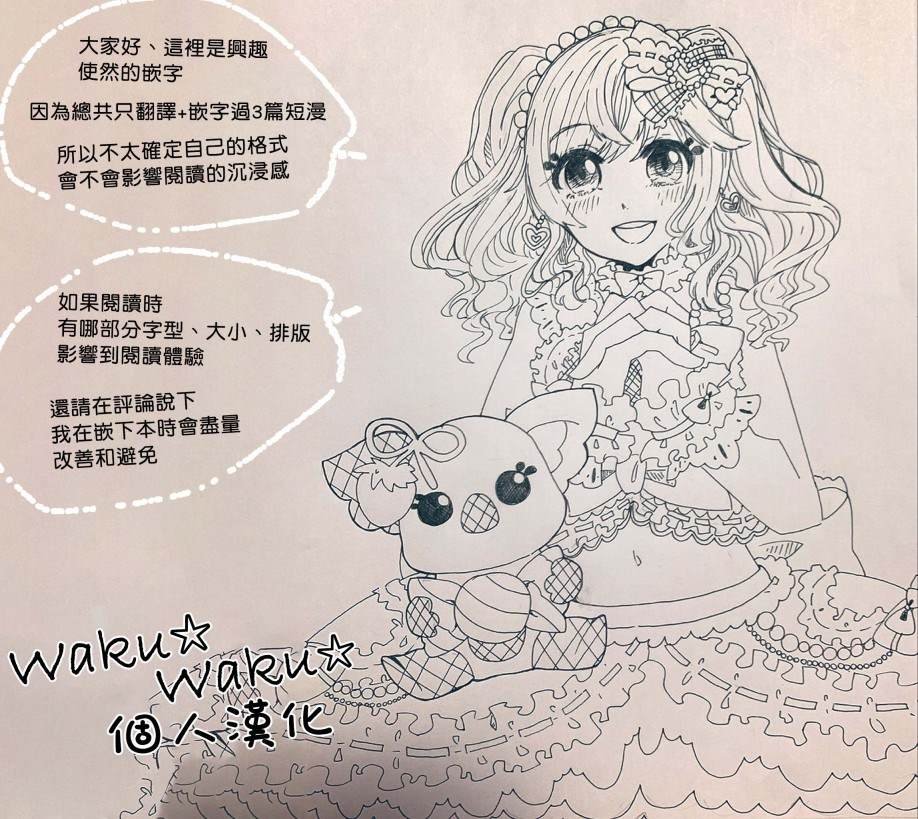 大家好、這裡是興趣
使然的嵌字
因為總共只翻譯+嵌字過3篇短漫
所以不太確定自己的格式
會不會影響閱讀的沉浸感
如果閱讀時
有哪部分字型、大小、排版
影響到閱讀體驗
還請在評論說下
我在嵌下本時會盡量
改善和避免
Waku☆
Waku☆
個人漢化